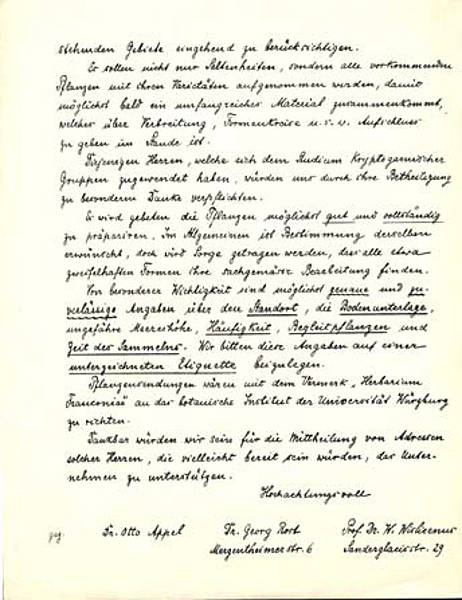 stehenden Gebiete eingehend zu berücksichtigen.
Es sollen nicht nur Seltenheiten, sondern alle vorkommenden
Pflanzen mit ihren Varietäten aufgenommen werden, damit
möglichst bald ein umfangreiches Material zusammenkommt,
welches über Verbreitung, Formenkreise u.s.w. Aufschluss
zu geben im Stande ist.
Diejenigen Herren, welche sich dem Studium Kryptogamischer
Gruppen zugewendet haben, würden uns durch ihre Betheiligung
zu besonderem Danke verpflichten.
Es wird gebeten die Pflanzen möglichst gut und vollständig
zu präpariren. Im Allgemeinen ist Bestimmung derselben
erwünscht, doch wird Sorge getragen werden, dass alle etwa
zweifelhaften Formen ihre sachgemässe Bearbeitung finden.
Von besonderer Wichtigkeit sind möglichst genaue und zu-
verlässige Angaben über den Standort, die Bodenunterlage,
ungefähre Meereshöhe, Häufigkeit, Begleitpflanzen und
Zeit des Sammelns. Wir bitten diese Angaben auf einer
unterzeichneten Etiquette beizulegen.
Pflanzensendungen wären mit dem Vermerk "Herbarium
Franconiae" an das botanische Institut der Universität Würzburg
zu richten.
Dankbar würden wir sein für die Mittheilung von Adressen
solcher Herren, die vielleicht bereit sein würden, das Unter-
nehmen zu unterstützen.
Hochachtungsvoll
gez. Dr. Otto Appel Dr. Georg Rost Prof. Dr. W. Wislicenus
Mergentheimerstr. 6 Sanderglacisstr. 29